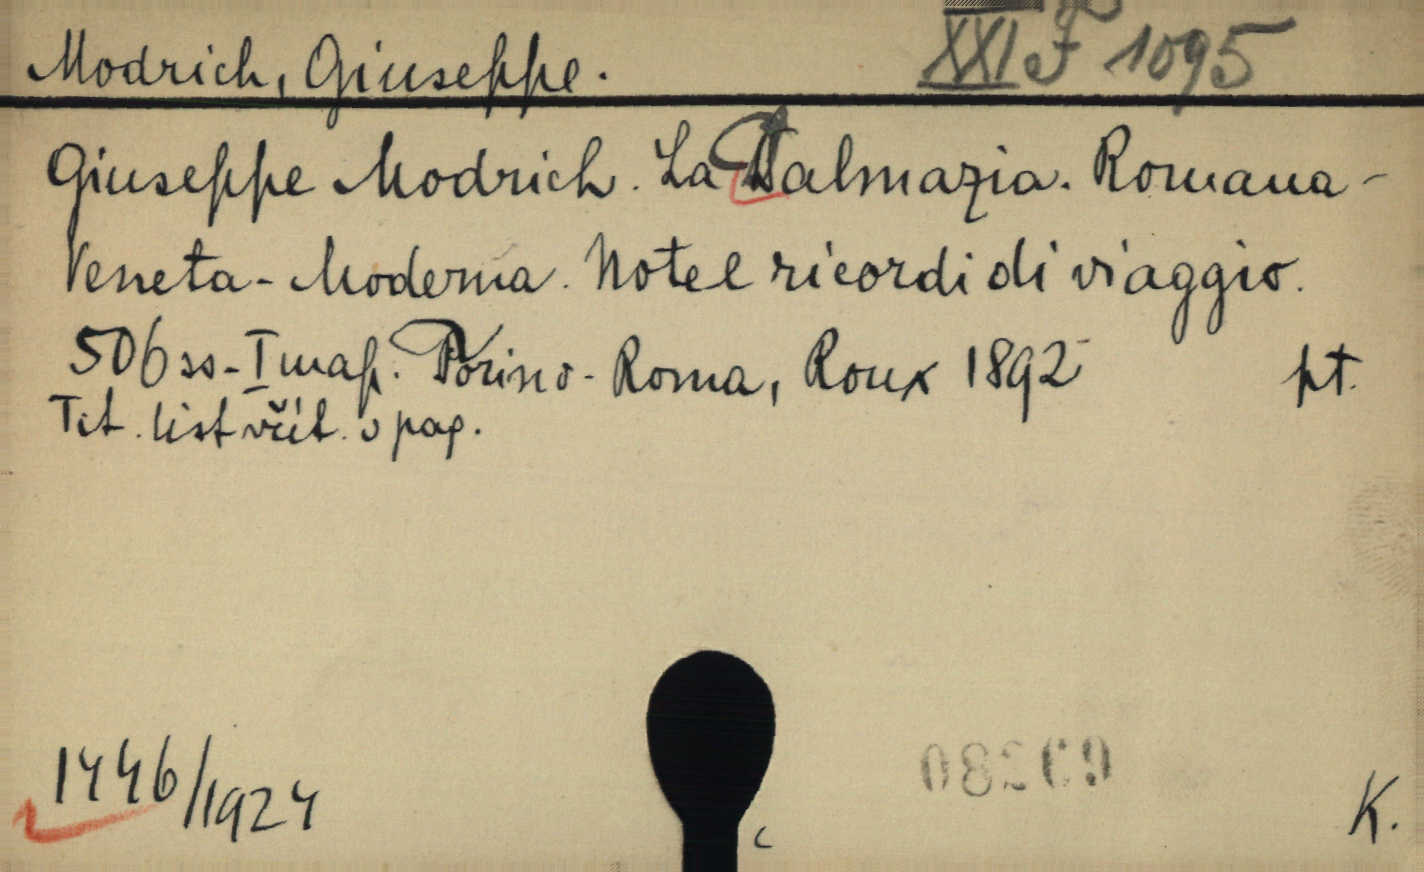 Modrich, Giuseppe.
XXI F 1095
Giuseppe Modrich. La Dalmazia. Romana-
Veneta - Moderna. Note e ricordi di viaggio.
506 ss - I map. Torino - Roma, Roux 1892 pt.
Tit. list včít. v pag.
1446/1924
K.